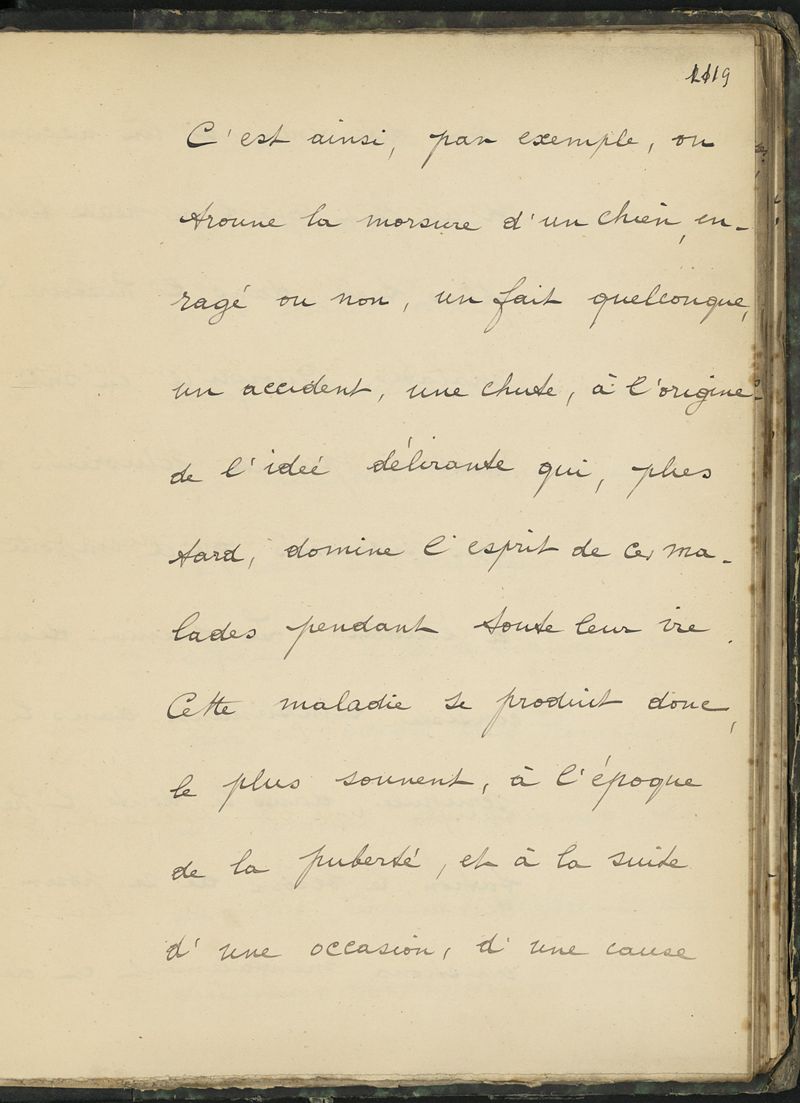 C'est ainsi, par exemple, on
trouve la morsure d'un chien, en-
ragé ou non, un fait quelconque,
un accident, une chute, à l'origine
de l'idée délirante qui, plus
tard, domine l'esprit de ces ma-
lades pendant toute leur vie.
Cette maladie se produit donc,
le plus souvent, à l'époque
de la puberté, et à la suite
d'une occasion, d'une cause